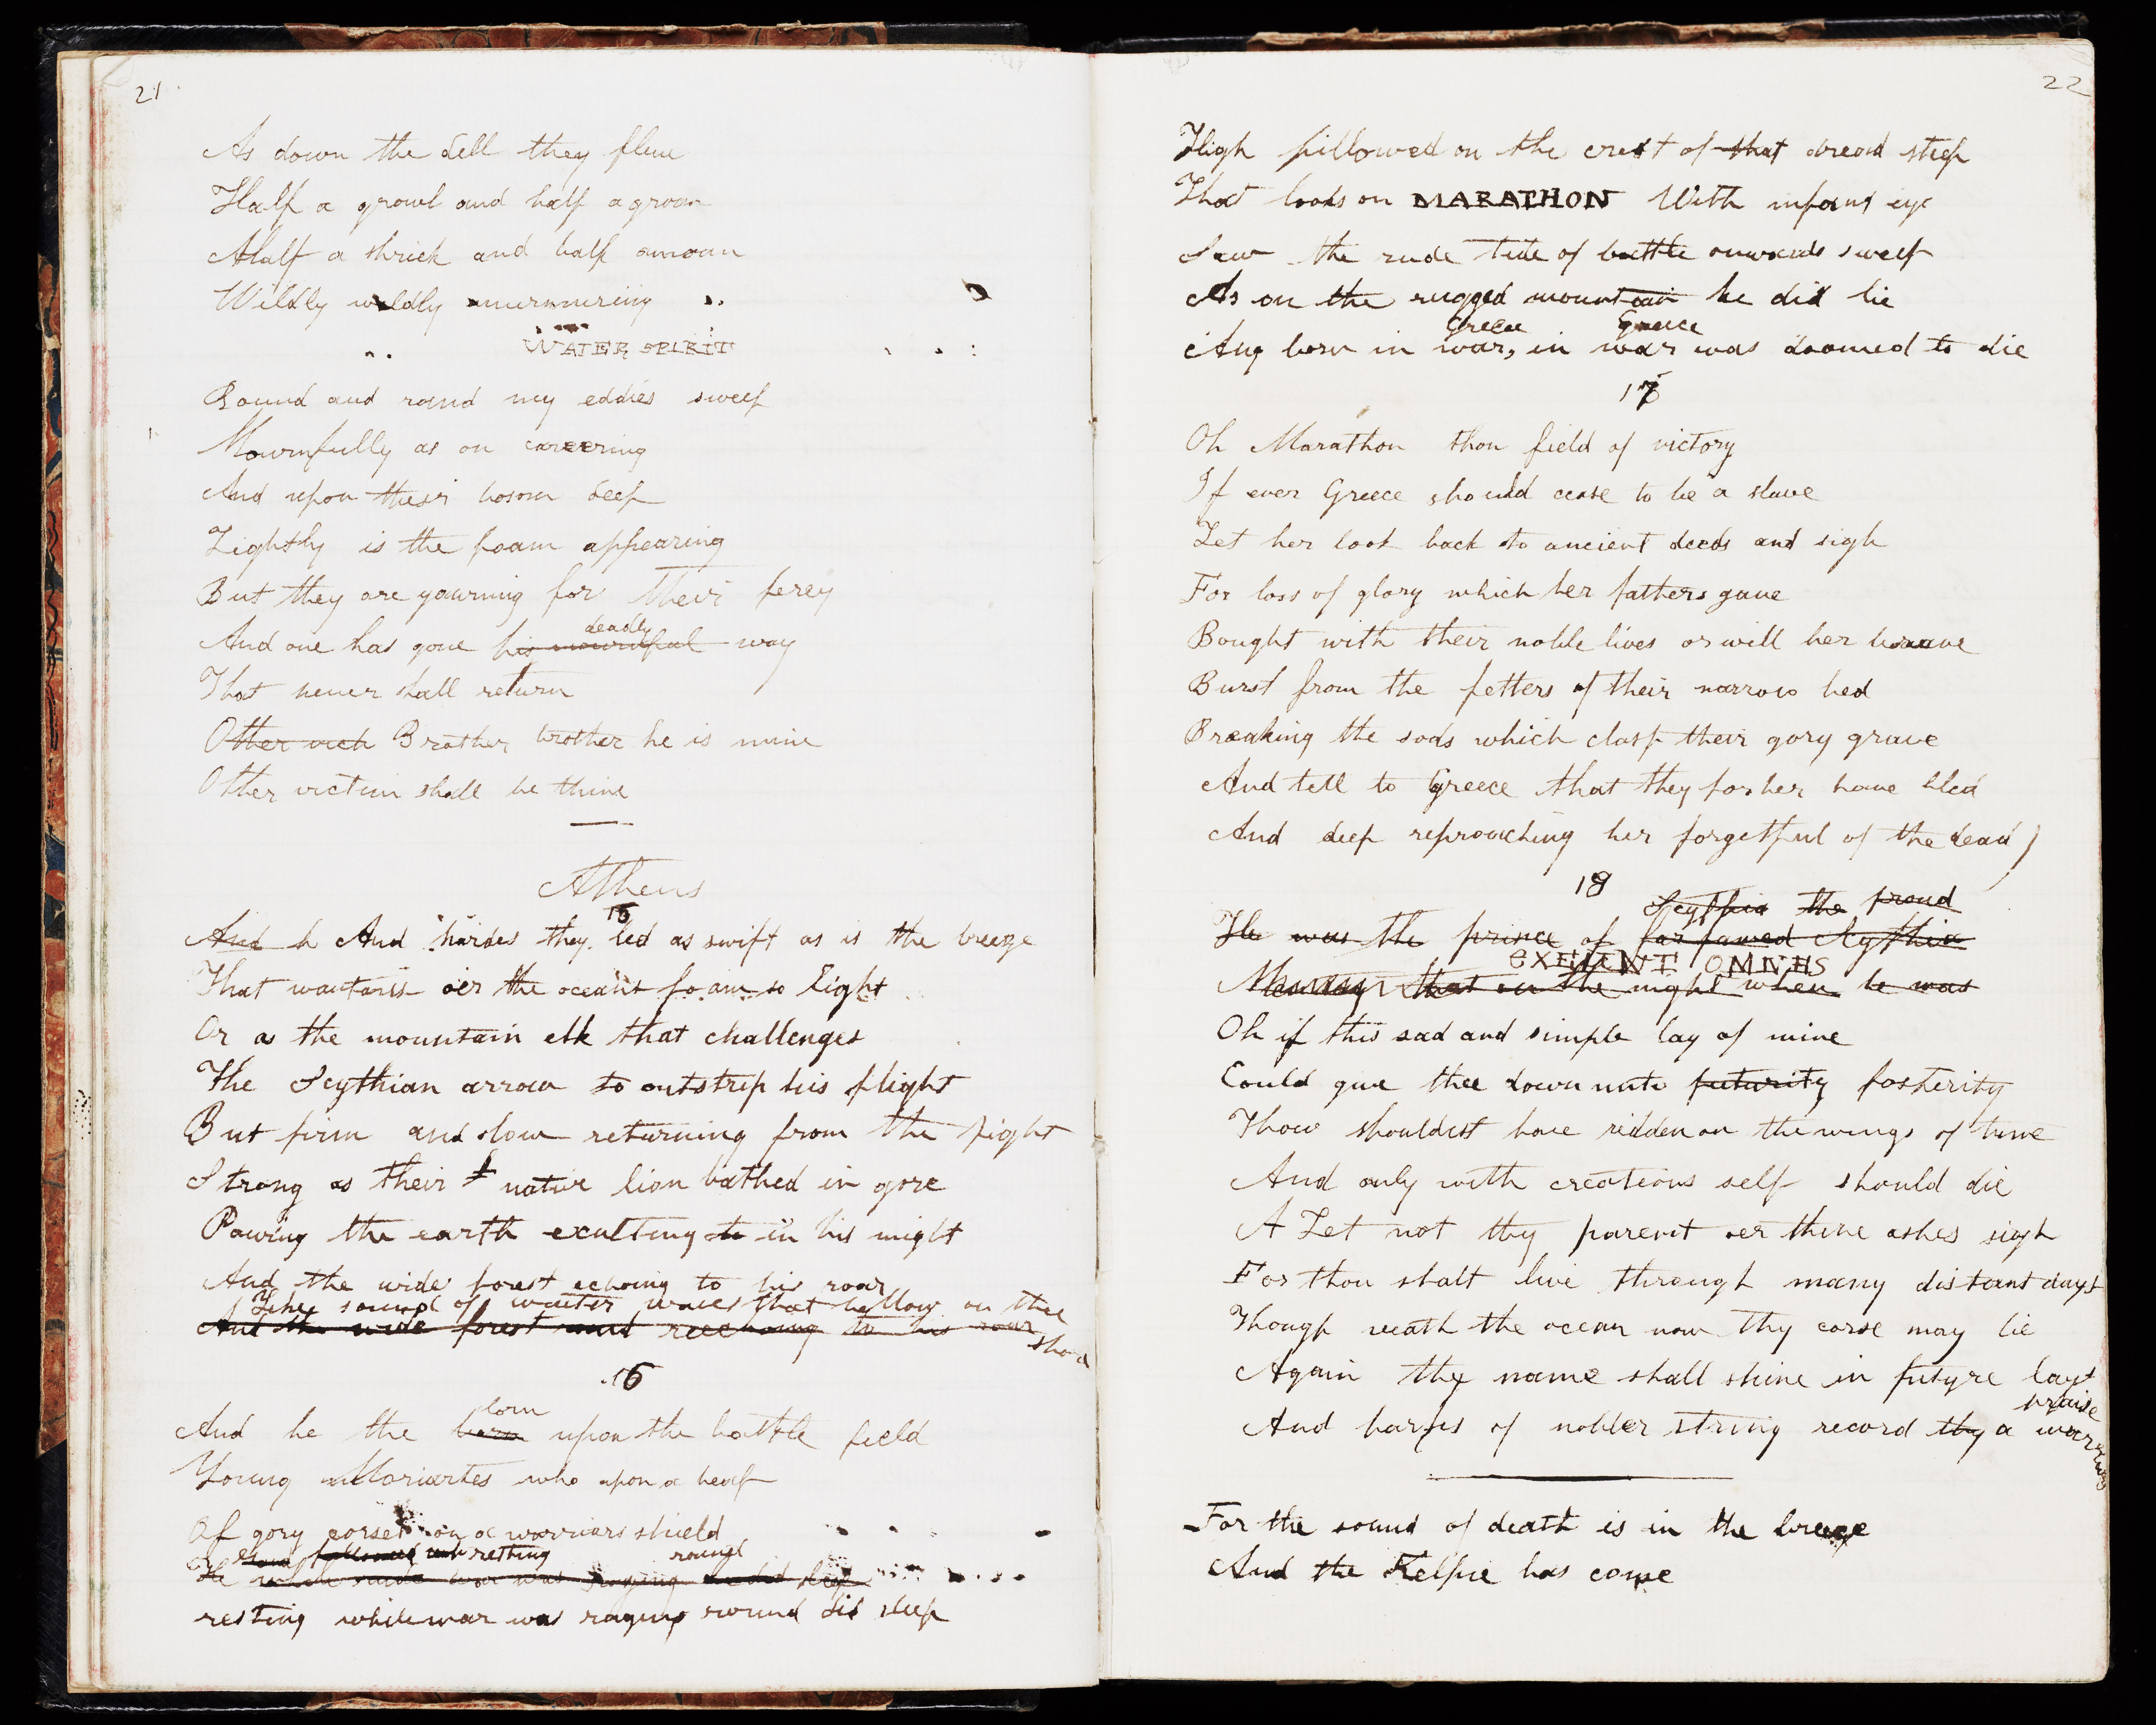 21
As down the dell they flew
Half a growl and half a groan
Half a shriek and half amoan
Wildly wildly murmuring
WATER SPIRIT
Round and rand my eddies sweep
Mournfully as on careering
And upon their bosom deep
Lightly is the foam appearing
But they are yawning for their prey
deadly
And one has gone his mournful way
That never shall return
Other vich Brother brother he is mine
Other victim shall be thine
Athens
15
And h And hordes they led as swift as is the breeze
That wantons oer the oceans foam so light
Or as the mountain elk that challenges
The Scythian arrow to outstrip his flight
But firm and slow returning from the fight
Strong as their native lion bathed in gore
Pawing the earth exulting to in his might
And the wide forest echoing to his roar
Like sound of winter waves that bellow on the shore
And the wide forest reechoing to his roar
16
born
And he the born upon the battle field
Young Moriartes who upon a heap
Of gory corses on a warriors shield
resting round
He while rude war was raging he did sleep
resting while war was raging round did sleep
22
High pillowed on the crest of that dread steep
That looks on MARATHON With infant eye
Saw the rude tide of battle onwards sweep
As on the rugged mountain he did lie
Greece Greece
Ang born in war, in war was doomed to die
17
Oh Marathon thou field of victory
If ever Greece should cease to be a slave
Let her look back to ancient deeds and sigh
For loss of glory which her fathers gave
Bought with their noble lives or will her brave
Burst from the fetters of their narrow bed
Breaking the sods which clasp their gory grave
And tell to Greece that they for her have bled
And deep reproaching her forgetful of the dead
18
Scythia the proud
He was the prince of far famed Scythia
EXEUNT OMNES
that on the night when he was
Oh if this sad and simple lay of mine
Could give thee down unto futurity posterity
Thou shouldst have ridden on the wings of time
And only with creations self should die
A Let not thy parent oer thine ashes sigh
For thou shalt live through many distant days
Though neath the ocean now thy corse may lie
Again thy name shall shine in future lays
praise
And harps of nobler string record thy a warriors
For the sound of death is in the breeze
And the Kelpie has come